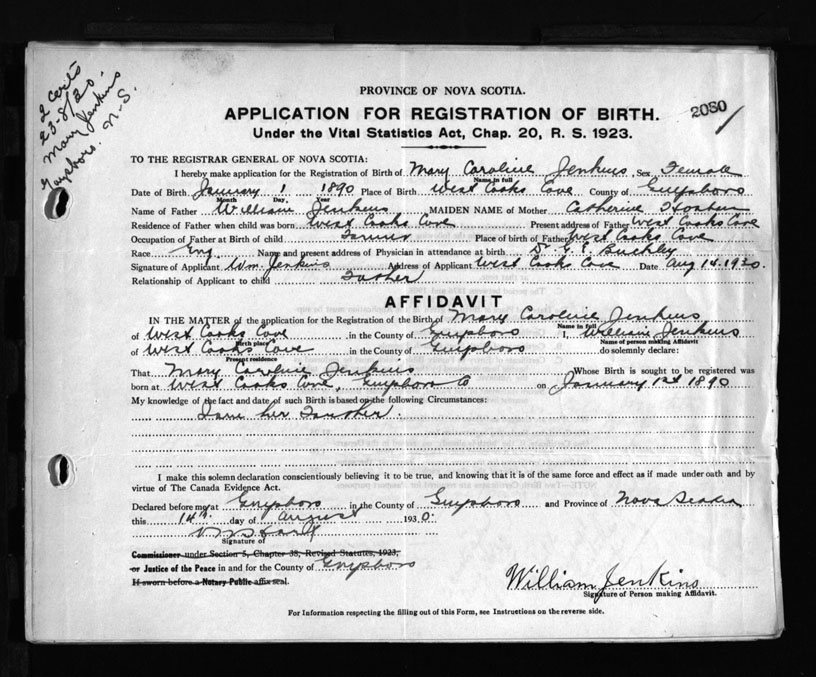 2 certs
23-8/20.
Mary Jenkins
Guysboro. N-S.
PROVINCE OF NOVA SCOTIA.
2080
APPLICATION FOR REGISTRATION OF BIRTH.
Under the Vital Statistics Act, Chap. 20, R. S. 1923.
TO THE REGISTRAR GENERAL OF NOVA SCOTIA:
I hereby make application for the Registration of Birth of Mary Caroline Jenkins, Sex Female
Name in full
Date of Birth January 1 1890 Place of Birth West Cooks Cove County of Guysboro
Month Day,
Name of Father William Jenkins MAIDEN NAME of Mother Catherine
Residence of Father when child was born West Cooks Cove Present address of Father West Cooks Cove
Occupation of Father at Birth of child Farmer Place of birth of Father West Cooks Cove
Race Eng Name and present address of Physician in attendance at birth Dr. G. E. Buckley
Signature of Applicant Wm. Jenkins Address of Applicant West Cooks Cove Date Aug 14. 1930.
Relationship of Applicant to child Father
AFFIDAVIT
IN THE MATTER of the application for the Registration of the Birth of Mary Caroline Jenkins
Name in full
of West Cooks Cove in the County of Guysboro I, William Jenkins
Birth place Name of person making Affidavit
of West Cooks Cove in the County of Guysboro do solemnly declare:
Present residence
That Mary Caroline Jenkins Whose Birth is sought to be registered was
born at West Cooks Cove, Guysboro Co on January 1st 1890
My knowledge of the fact and date of such Birth is based on the following Circumstances:
I am her Farther.
I make this solemn declaration conscientiously believing it to be true, and knowing that it is of the same force and effect as if made under oath and by
virtue of The Canada Evidence Act.
Declared before me at Guysboro in the County of Guysboro and Province of Nova Scotia
this 14th day of August 1930.
Signature of
Commissioner under Section 5, Chapter 38, Revised Statutes, 1923,
or Justice of the Peace in and for the County of Guysboro
If sworn before a Notary Public affix seal.
William Jenkins
Signature of Person making Affidavit.
For Information respecting the filling out of this Form, see Instructions on the reverse side.